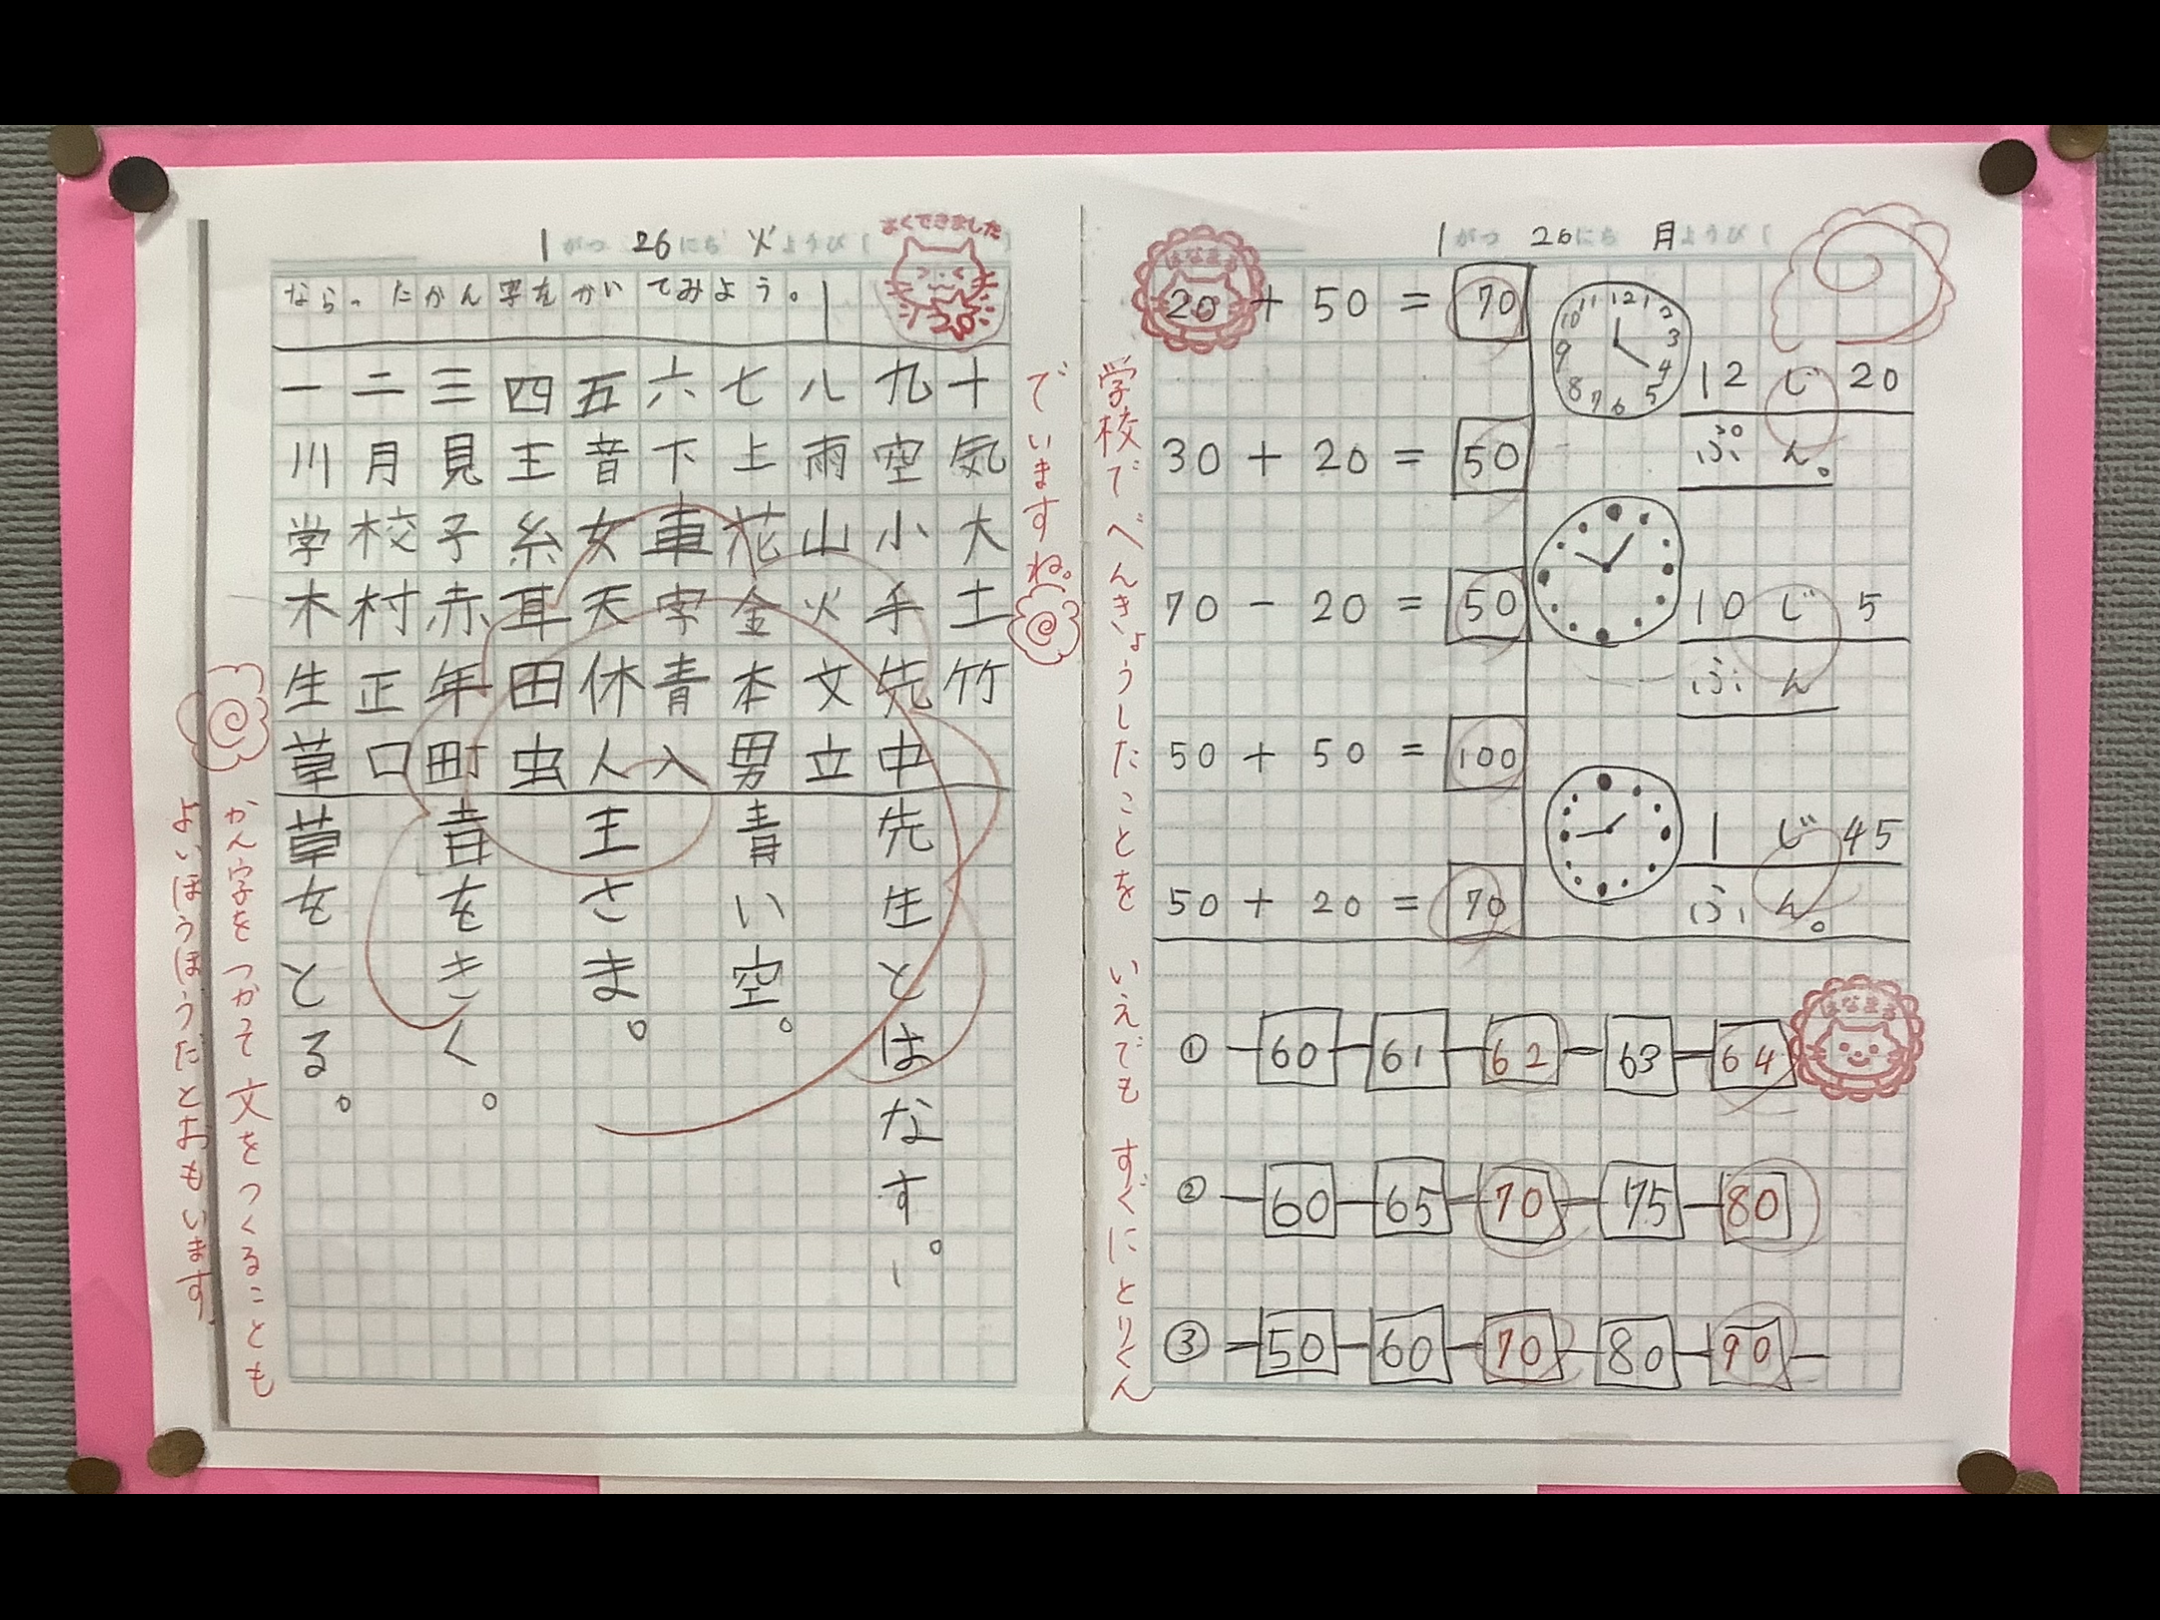 1がつ 26にち 火ようび(
よくできました
ならったかん字をかいてみよう。
一二三四五六七八九十
川月見王音下上雨空気
学校子糸女車花山小大
木村赤耳天字金火手土
生正年田休青本文先竹
草口町虫人入男立中
草をとる。
音をきく。
王さま。
青い空。
先生とはなす。
1がつ 26にち 月ようび(
はなまる
20+50=70
30+20=50
70-20=50
50+50=100
50+20=70
11 12 1 2 3 4 5 6 7 8 9 10
12じ20
ぷん。
10じ5
ふん
1じ45
ふん。
① 60 61 62 63 64
はなまる
② 60 65 70 75 80
③ 50 60 70 80 90
学校でべんきょうしたことを いえでも すぐにとりくん
でいますね。
かん字を つかって 文をつくることも
よいほうほうだとおもいます